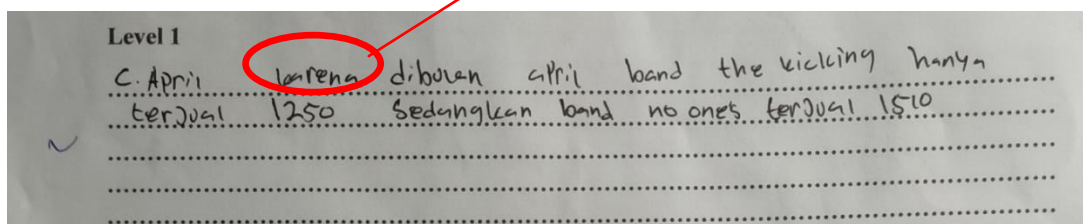 Level 1
C. April karena dibulan april band the kicking hanya
terjual 1250 sedangkan band no one's terjual 1510